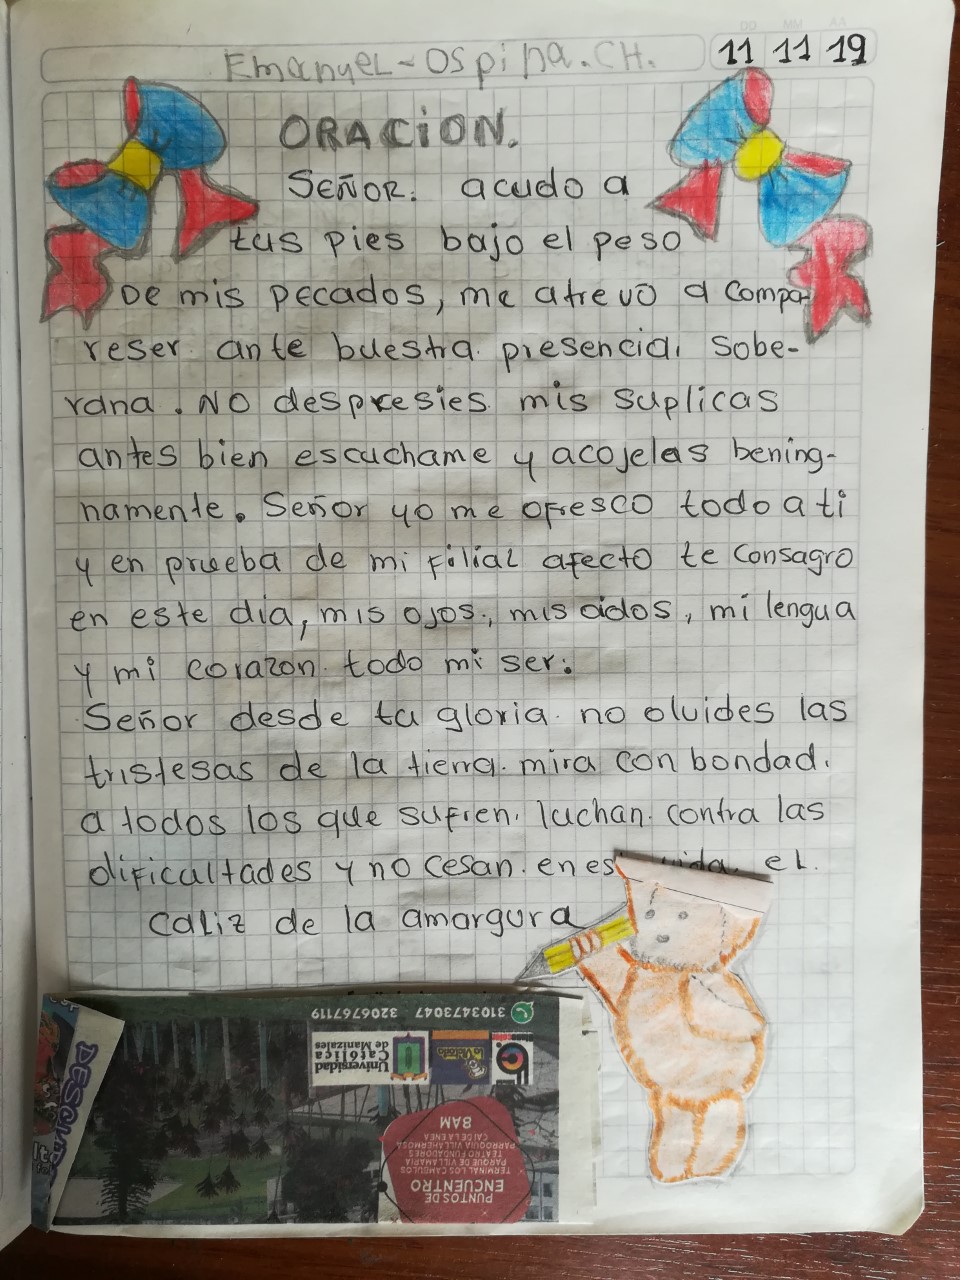 DD MM AA
Emanuel-Ospina.CH.
11 11 19
ORACION.
SEÑOR: acudo a
tus pies bajo el peso
De mis pecados, me atrevo a Compa-
reser ante buestra presencia, sobe-
rana. No despresies mis suplicas
antes bien escuchame y acojelas bening-
namente. Señor yo me ofresco todo a ti
y en prueba de mi filial afecto te consagro
en este dia, mis ojos, mis oidos, mi lengua
y mi corazon. todo mi ser.
Señor desde tu gloria. no oluides las
tristesas de la tierra. mira con bondad.
a todos los que sufren. luchan. contra las
dificultades y no cesan. en es vida. eL.
Caliz de la amargura
3103473047 3206767119
Universidad
Católica
de Manizales
PUNTOS DE
ENCUENTRO
TERMINAL LOS CAMBULOS
PARQUE DE VILLAMARIA
TEATRO FUNDADORES
PARROQUIA VILLAHERMOSA
CAI DE LA ENEA
8AM